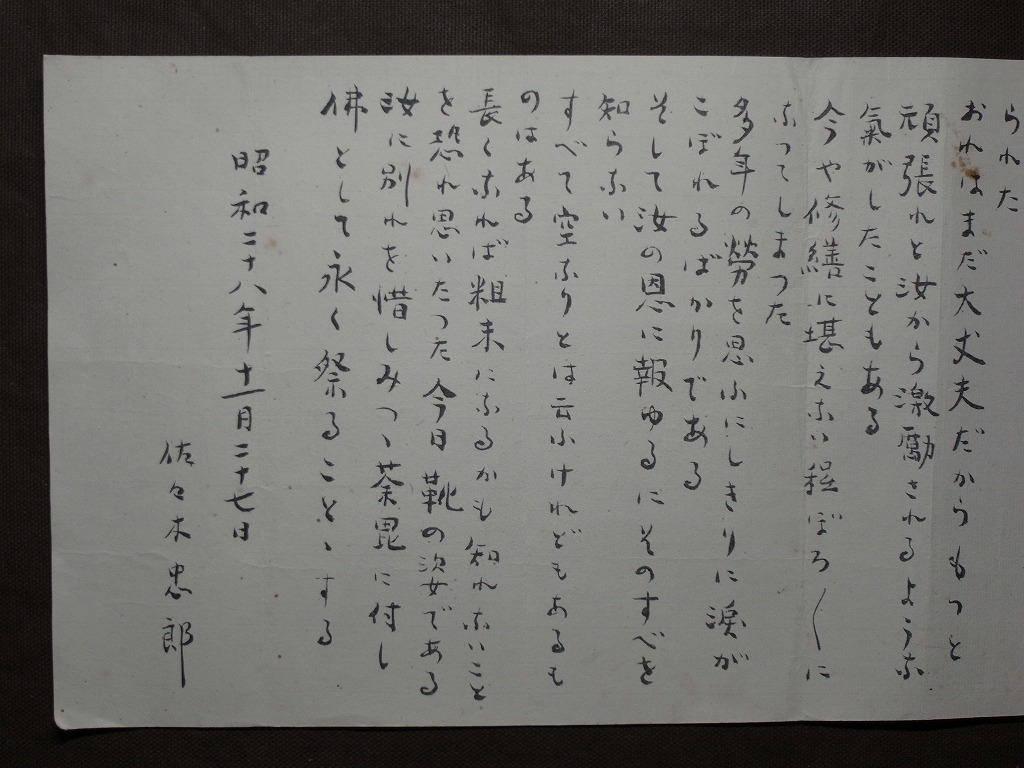 られた
おれはまだ大丈夫だからもつと
頑張れと汝から激勵されるような
氣がしたこともある
今や修繕に堪えない程ぼろ〱に
なつてしまつた
多年の勞を思ふにしきりに涙が
こぼれるばかりである
そして汝の恩に報ゆるにそのすべを
知らない
すべて空なりとは云ふけれどもあるも
のはある
長くなれば粗末になるかも知れないこと
を恐れ思いたつた今日靴の姿である
汝に別れを惜しみつゝ荼毘に付し
佛として永く祭ることゝする
昭和二十八年十一月二十七日
佐々木忠郎